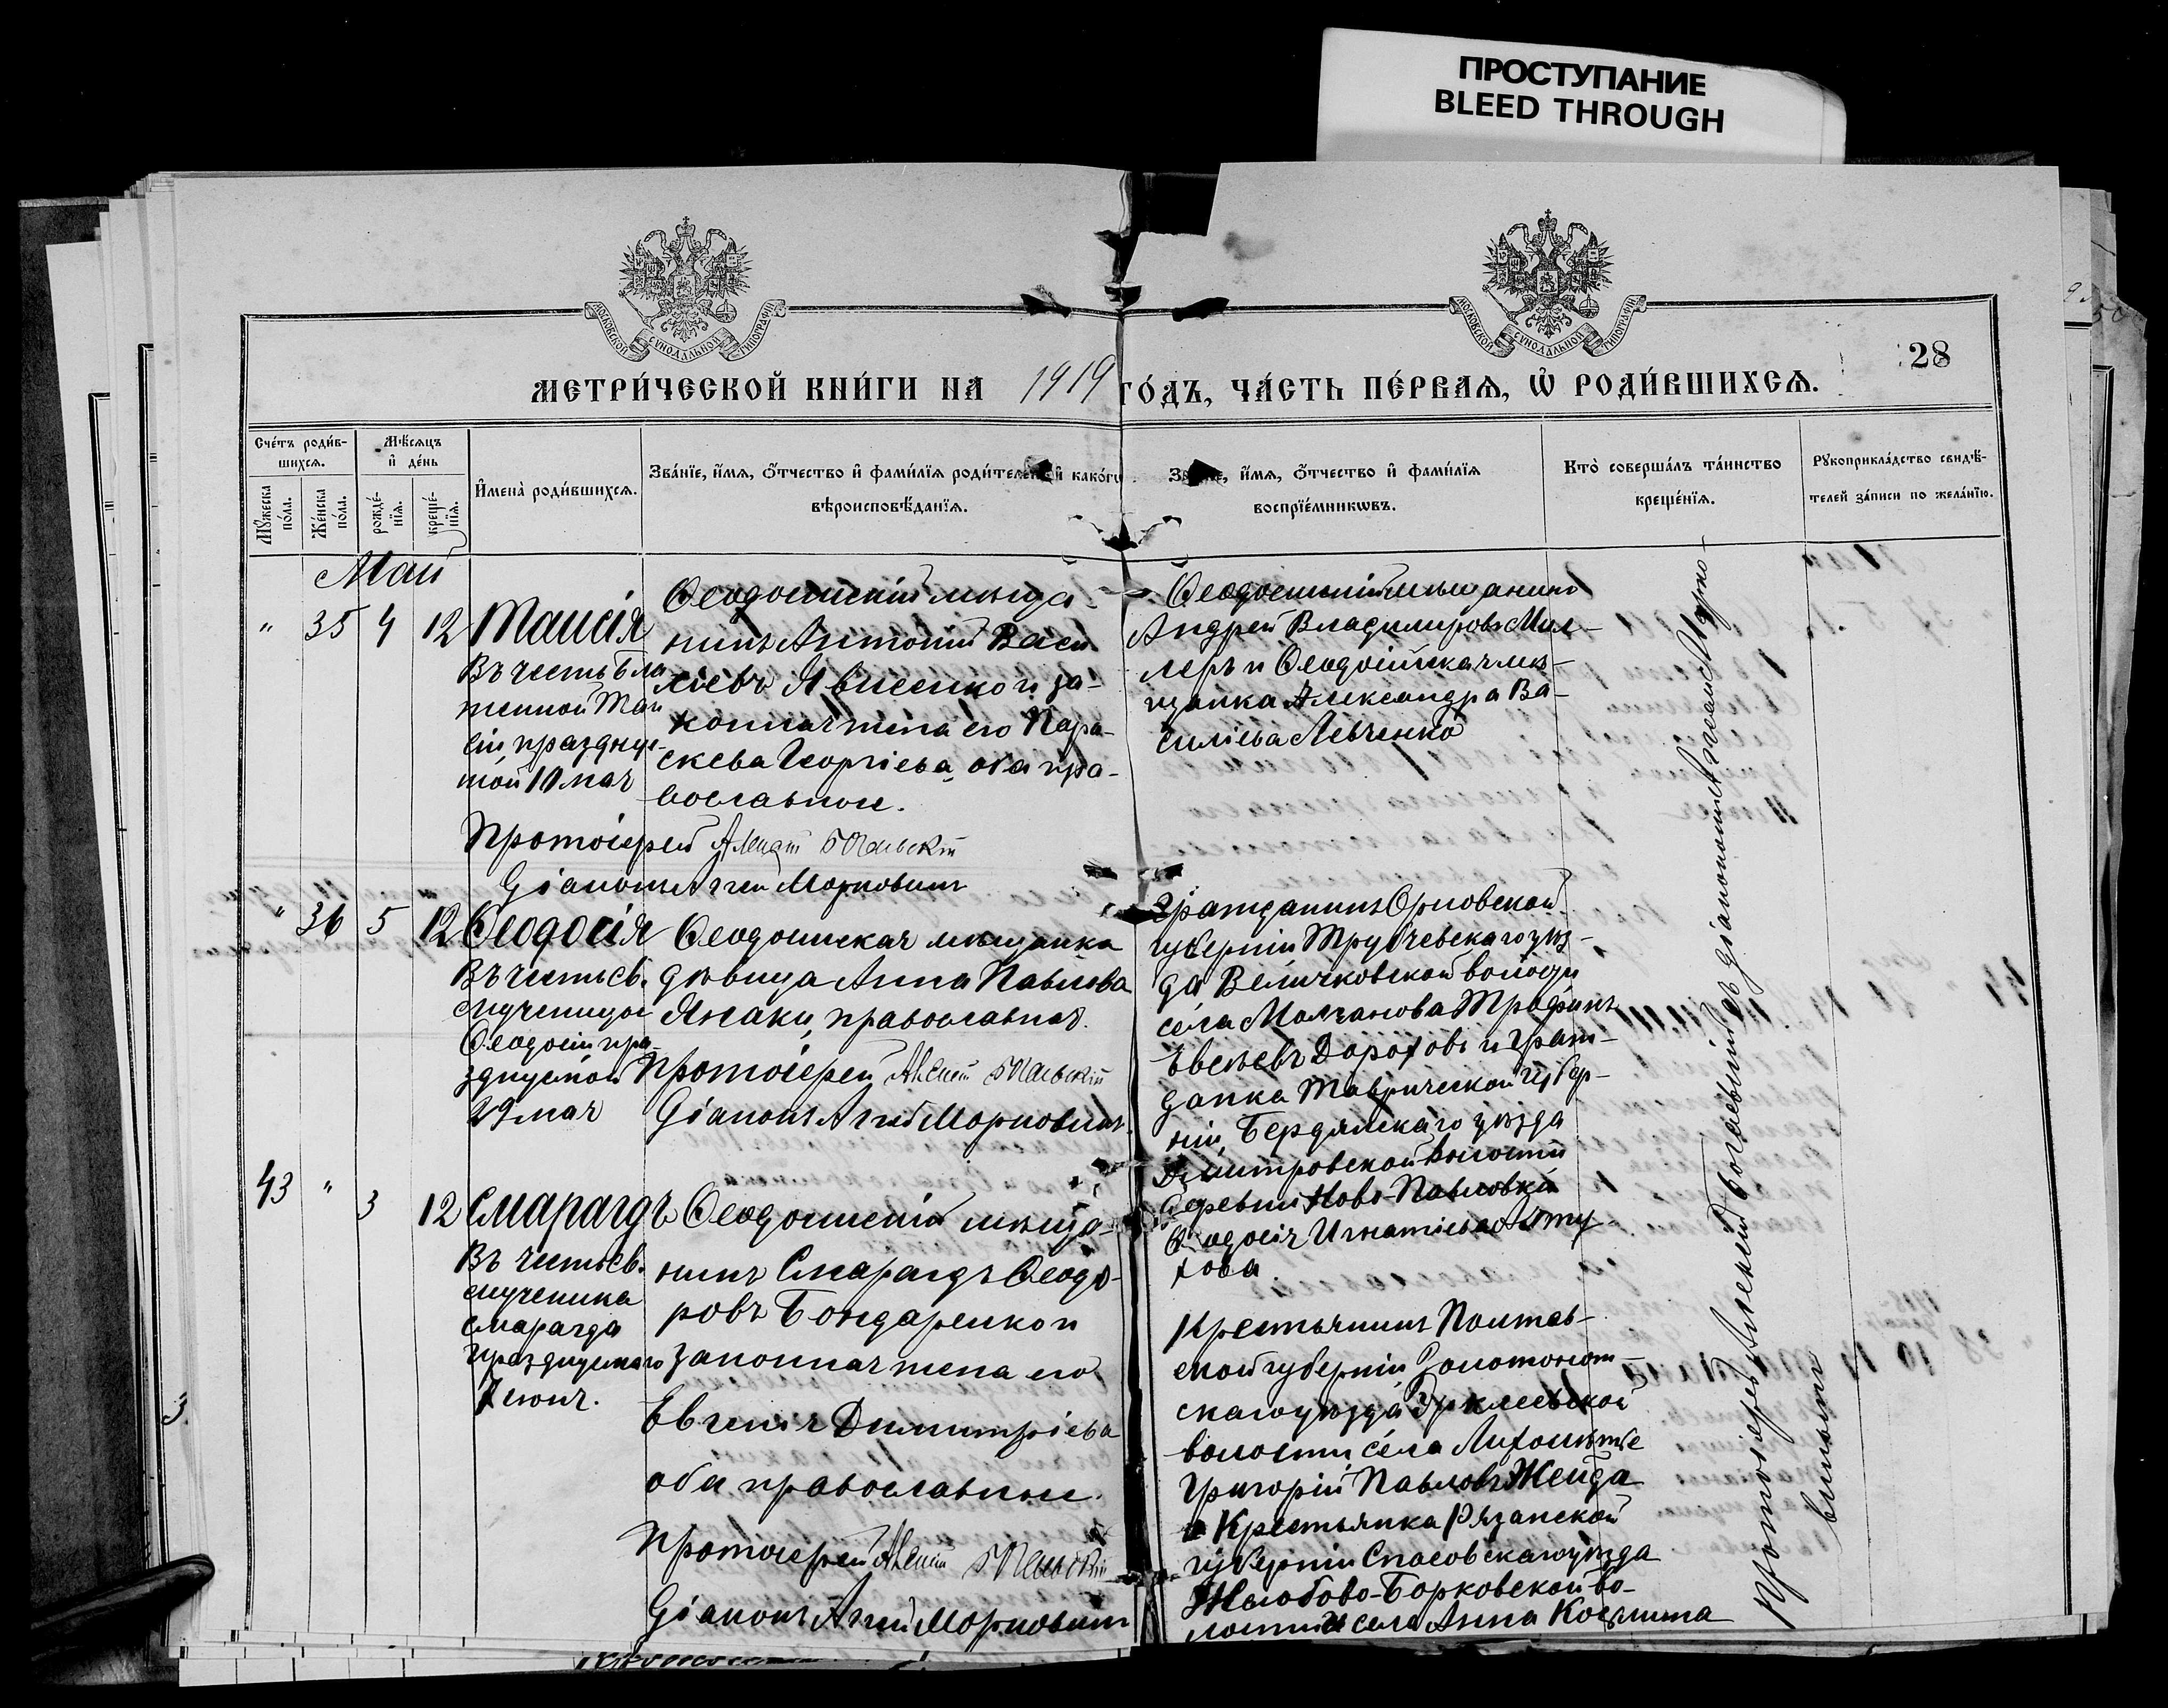 ПРОСТУПАНИЕ
BLEED THROUGH
МОСКОВСКОЙ СѴНОДАЛЬНОЙ ТИПОГРАФІИ
МОСКОВСКОЙ СѴНОДАЛЬНОЙ ТИПОГРАФІИ
28
МЕТРИ́ЧЕСКОЙ КНИ́ГИ НА 1919 ГО́ДЪ, ЧА́СТЬ ПЕ́РВАѦ, Ѡ РОДИ́ВШИХСѦ.
Сче́тъ роди́в-
шихсѧ.
Мꙋ́жеска по́ла.
Же́нска по́ла.
Мѣ́сѧцъ и де́нь
рожде́-нїѧ.
креще́-нїѧ.
Имена̀ роди́вшихсѧ.
Зва́нїе, и́мѧ, о́тчество и фами́лїѧ роди́телей и како́гѡ
вѣроисповѣ́данїѧ.
Зва́нїе, и́мѧ, о́тчество и фами́лїѧ
воспрїе́мникѡвъ.
Кто̀ соверша́лъ та́инство
креще́нїѧ.
Рꙋкоприкла́дство свидѣ́-
телей за́писи по жела́нїю.
Май
" 35 4 12 Таисія
Въ честь бла-
женной Таи
сіи празднуе-
мой 10 мая
Ѳеодосійскій мѣща-
нинъ Антоній Васи-
ліевъ Явисенко и за-
конная жена его Пара-
скева Георгіева, оба пра-
вославные.
Протоіерей
Діаконъ Аггей Марковинъ
Ѳеодосійскій мѣщанинъ
Андрей Владимировъ Мил-
леръ и Ѳеодосійская мѣ-
щанка Александра Ва-
силіева Левченко
" 36 5 12 Ѳеодосія
Въ честь св.
мученицы
Ѳеодосіи пра-
зднуемой
29 мая
Ѳеодосійская мѣщанка
дѣвица Анна Павлова
Янаки, православная.
Протоіерей
Діаконъ Аггей Марковинъ.
Гражданинъ Орловской
губерніи Трубчевскаго уѣз-
да Величковской волости
села Молчанова Трофимъ
Евсѣевъ Дороховъ и граж-
данка Таврической губер-
ніи, Бердянскаго уѣзда
Дмитровской волости
деревни Ново-Павловки
Ѳеодосія Игнатіева Алту
хова.
43 " 3 12 Смарагдъ
Въ честь св.
мученика
Смарагда
празднуемаго
7 іюня.
Ѳеодосійскій мѣща-
нинъ Смарагдъ Ѳеодо-
ровъ Бондаренко и
законная жена его
Евгенія Димитріева
оба православные.
Протоіерей
Діаконъ Аггей Марковинъ
Крестьянинъ Полтав-
ской губерніи Золотонош-
скаго уѣзда Ирклеевской
волости села Лихолѣтке
Григорій Павловъ Жейда
и Крестьянка Рязанской
губерніи Спасовскаго уѣзда
Желобово-Борковской во-
лости и села Анна Косьмина
Протоіерей Алексій съ діакономъ Аггеемъ Марко-
винымъ